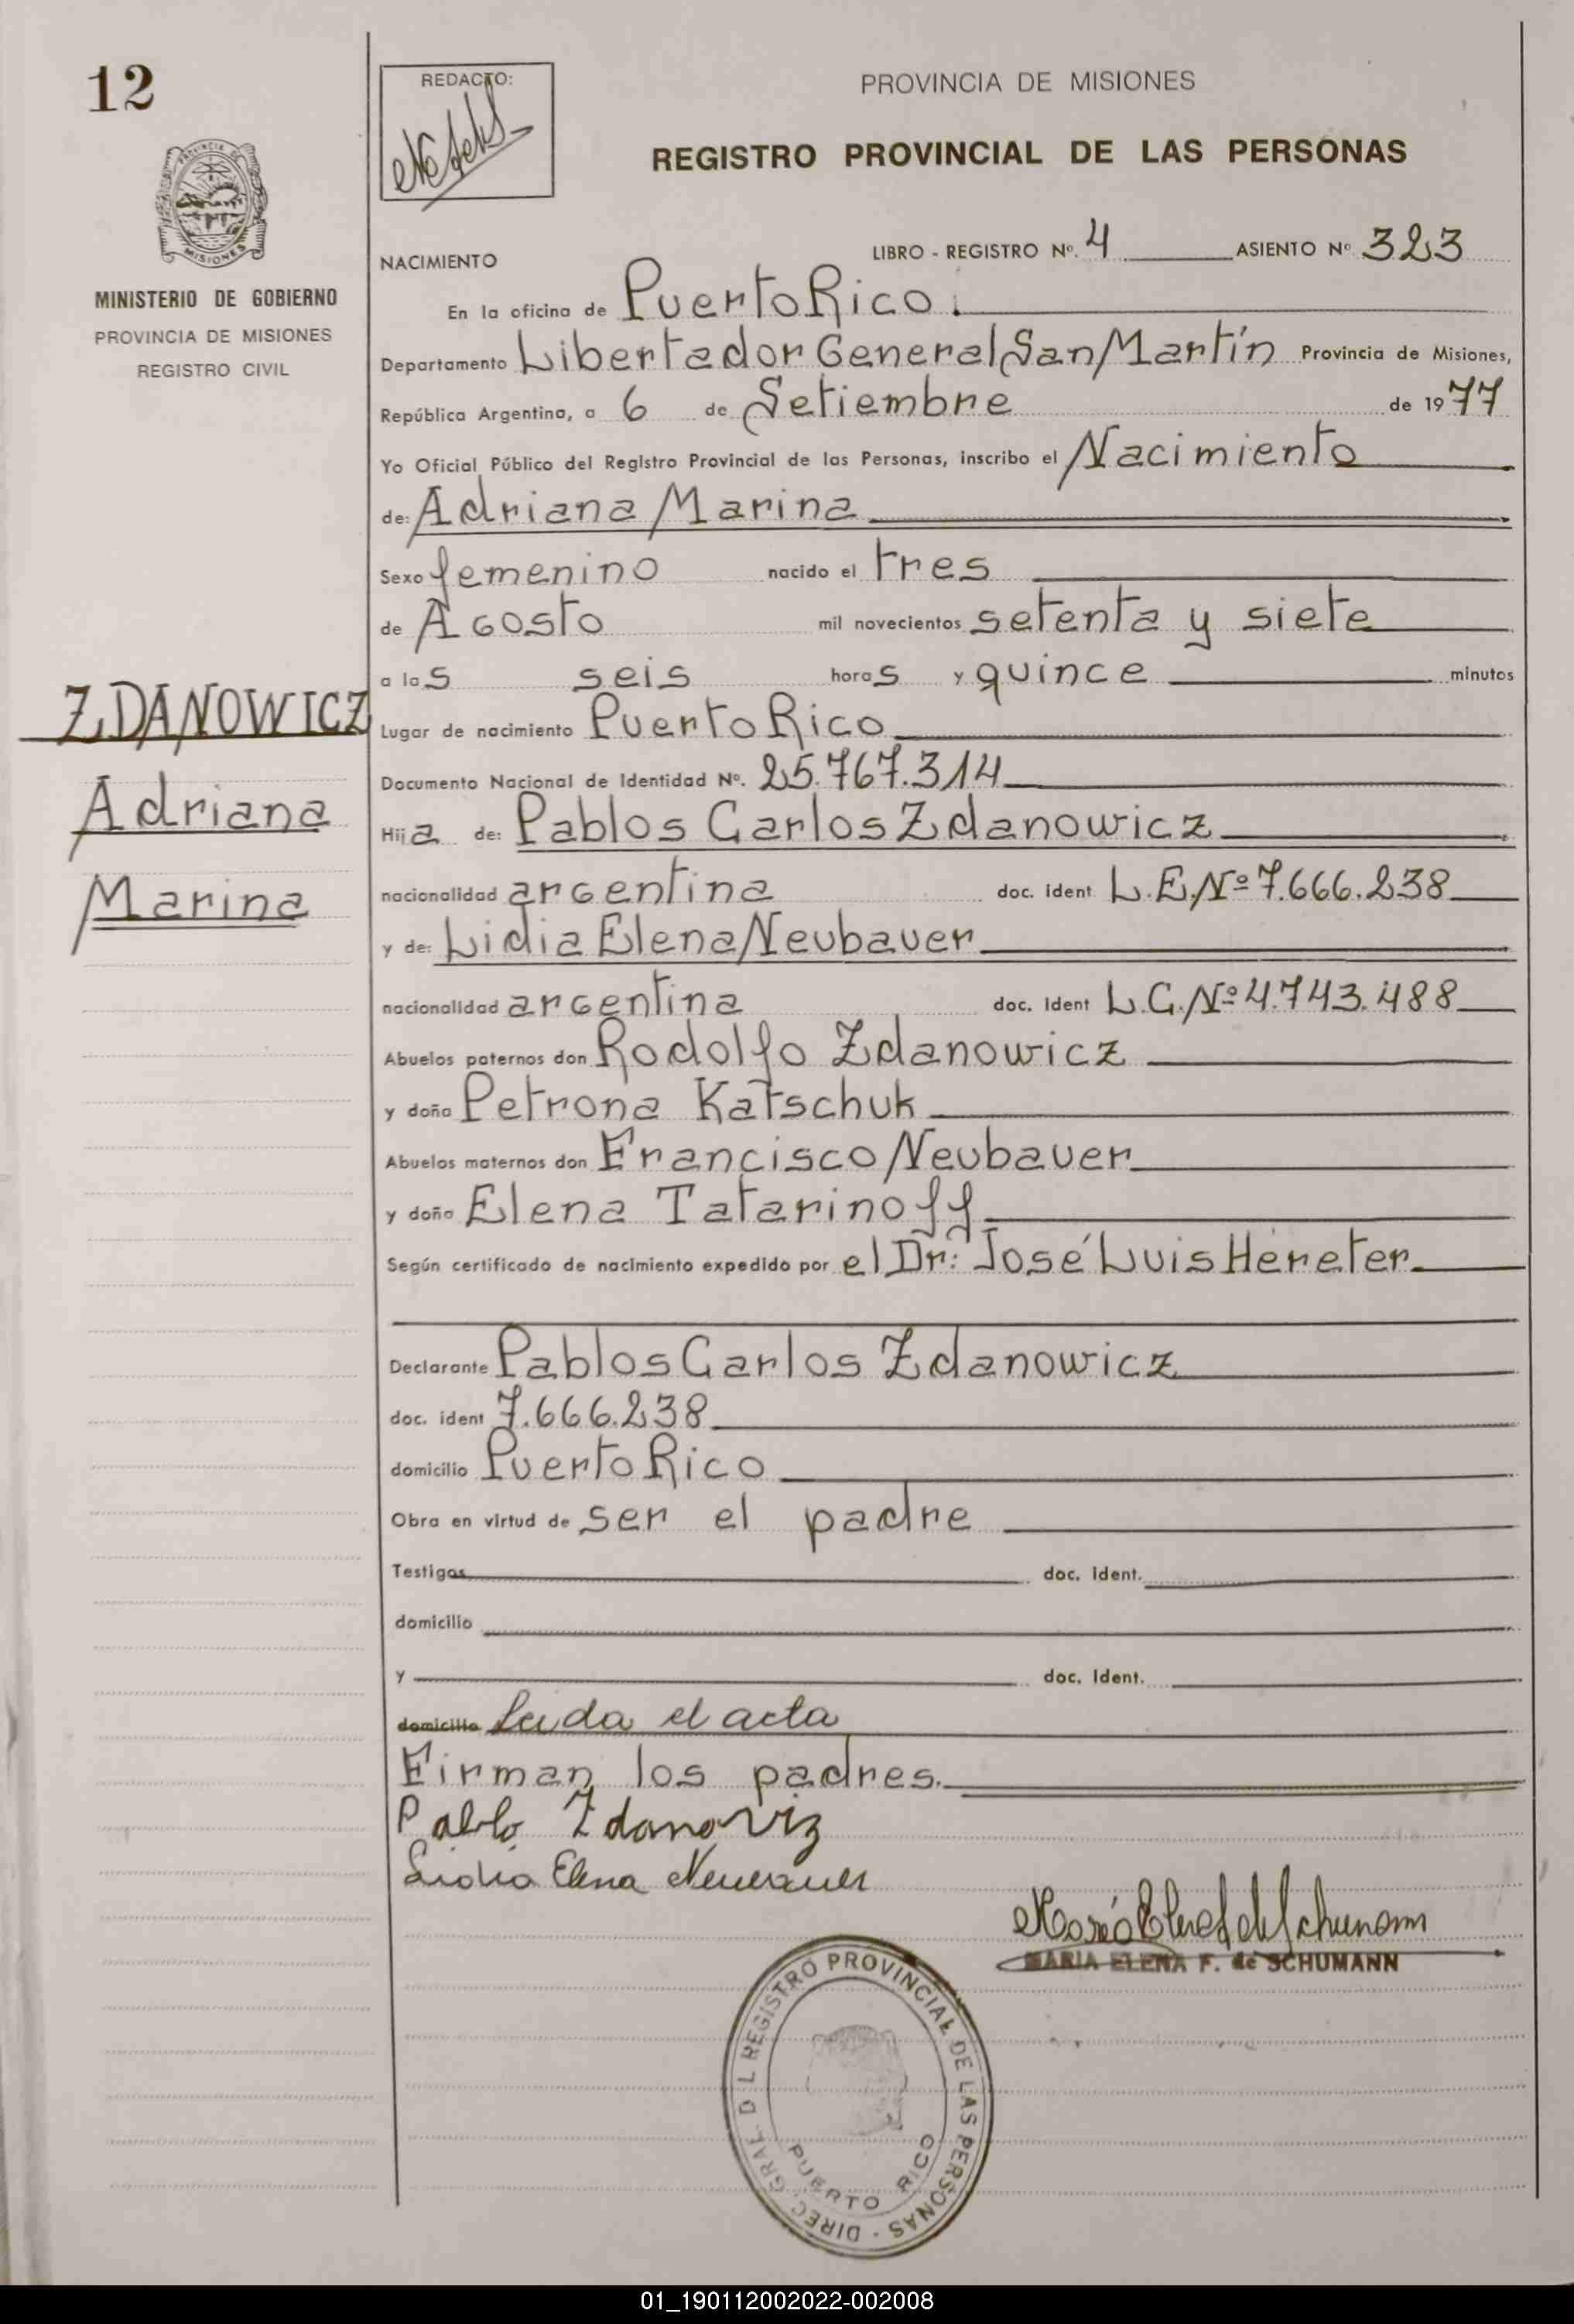 12
REDACTO:
PROVINCIA DE MISIONES
REGISTRO PROVINCIAL DE LAS PERSONAS
PROVINCIA DE
MISIONES
MINISTERIO DE GOBIERNO
PROVINCIA DE MISIONES
REGISTRO CIVIL
NACIMIENTO
LIBRO - REGISTRO Nº. 4 ASIENTO Nº 323
En la oficina de Puerto Rico.
Departamento Libertador General San Martín Provincia de Misiones,
República Argentina, a 6 de Setiembre de 1977
Yo Oficial Público del Registro Provincial de las Personas, inscribo el Nacimiento
de: Adriana Marina
Sexo femenino nacido el tres
de Agosto mil novecientos setenta y siete
a las seis horas y quince minutos
ZDANOWICZ
Adriana
Marina
Lugar de nacimiento Puerto Rico
Documento Nacional de Identidad Nº. 25.767.314
Hija de: Pablos Carlos Zdanowicz
nacionalidad argentina doc. ident L.E.Nº 7.666.238
y de: Lidia Elena Neubauer
nacionalidad argentina doc. ident L.C.Nº 4.743.488
Abuelos paternos don Rodolfo Zdanowicz
y doña Petrona Katschuk
Abuelos maternos don Francisco Neubauer
y doña Elena Tatarinoff
Según certificado de nacimiento expedido por el Dr: José Luis Héreter
Declarante Pablos Carlos Zdanowicz
doc. ident 7.666.238
domicilio Puerto Rico
Obra en virtud de ser el padre
Testigos doc. ident.
domicilio
y doc. ident.
domicilio Leida el acta
Firman los padres.
Pablo Zdanoviz
Lidia Elena
MARIA ELENA F. de SCHUMANN
DIREC. GRAL. D L REGISTRO PROVINCIAL DE LAS PERSONAS
PUERTO RICO
01_190112002022-002008